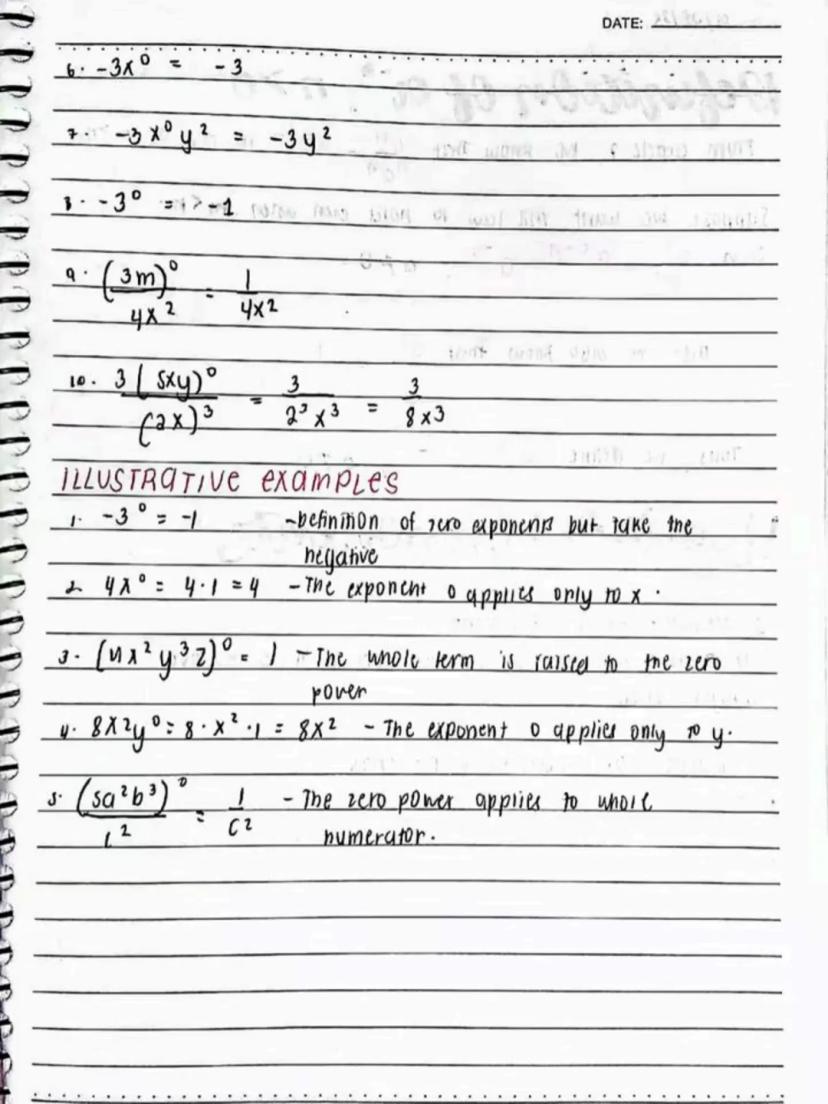 DATE:
6. -3x⁰ = -3
7. -3x⁰y² = -3y²
8. -3⁰ = -1
9. (3m)⁰/4x² = 1/4x²
10. 3(5xy)⁰/(2x)³ = 3/2³x³ = 3/8x3
ILLUSTRATIVE examples
1. -3⁰ = -1 - Definition of zero exponents but take the
negative
2. 4x⁰ = 4·1 = 4 - The exponent 0 applies only to x.
3. (4x²y³z)⁰ = 1 - The whole term is raised to the zero
power
4. 8x2y⁰ = 8·x²·1 = 8x2 - The exponent 0 applies only to y.
5. (5a²b³)⁰/c² = 1/c2 - The zero power applies to whole
numerator.